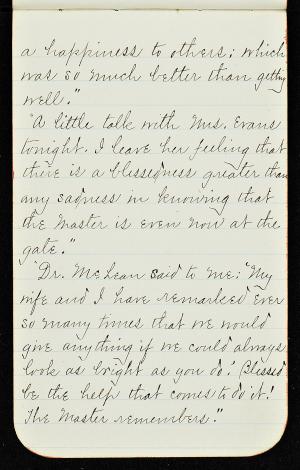 a happiness to others; which
was so much better than getting
well."
"A little talk with Mrs. Evans
tonight. I leave her feeling that
there is a blessedness greater than
any sadness in knowing that
the Master is even now at the
gate."
"Dr. McLean said to me: "My
wife and I have remarked ever
so many times that we would
give anything if we could always
look as bright as you do! Blessed
be the help that comes to do it!
The Master remembers."